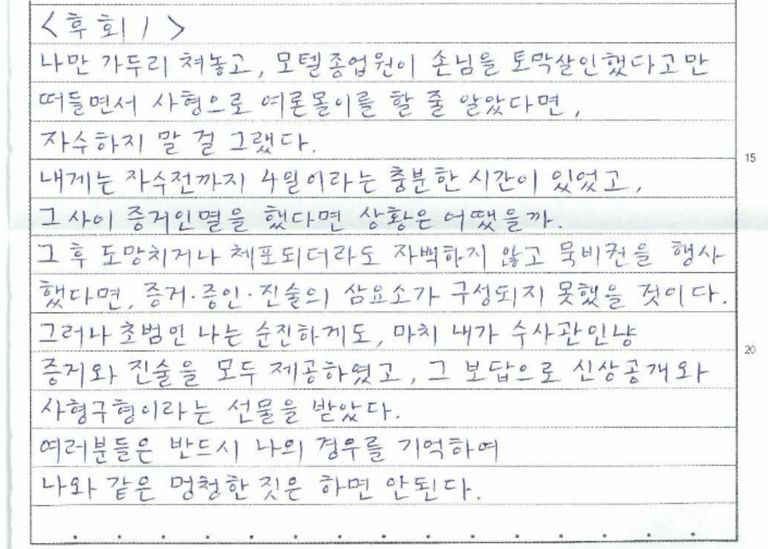 <후회 1>
나만 가두리 쳐놓고, 모텔종업원이 손님을 토막살인했다고만
떠들면서 사형으로 여론몰이를 할 줄 알았다면,
자수하지 말 걸 그랬다.
내게는 자수전까지 4일이라는 충분한 시간이 있었고,
그 사이 증거인멸을 했다면 상황은 어땠을까.
그 후 도망치거나 체포되더라도 자백하지 않고 묵비권을 행사
했다면, 증거·증인·진술의 삼요소가 구성되지 못했을 것이다.
그러나 초범인 나는 순진하게도, 마치 내가 수사관인냥
증거와 진술을 모두 제공하였고, 그 보답으로 신상공개와
사형구형이라는 선물을 받았다.
여러분들은 반드시 나의 경우를 기억하여
나와 같은 멍청한 짓은 하면 안된다.
15
20